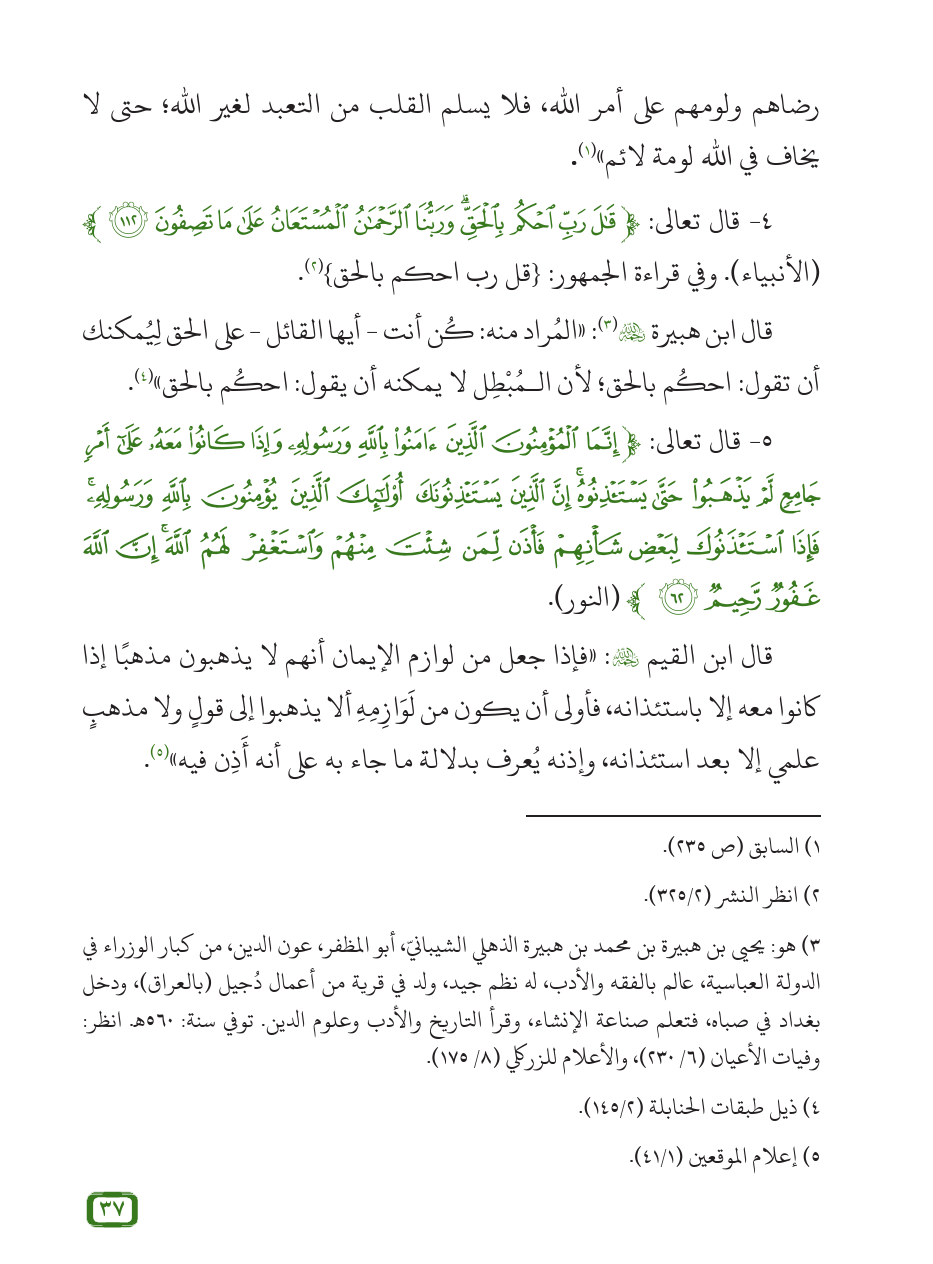 رضاهم ولومهم على أمر الله، فلا يسلم القلب من التعبد لغير الله؛ حتى لا
يخاف في الله لومة لائم»(١).
٤- قال تعالى: ﴿قَٰلَ رَبِّ ٱحۡكُم بِٱلۡحَقِّۗ وَرَبُّنَا ٱلرَّحۡمَٰنُ ٱلۡمُسۡتَعَانُ عَلَىٰ مَا تَصِفُونَ ١١٢﴾
(الأنبياء). وفي قراءة الجمهور: {قل رب احكم بالحق}(٢).
قال ابن هبيرة رحمه الله(٣): «المُراد منه: كُن أنت - أيها القائل - على الحق لِيُمكنك
أن تقول: احكُم بالحق؛ لأن الـمُبْطِل لا يمكنه أن يقول: احكُم بالحق»(٤).
٥- قال تعالى: ﴿إِنَّمَا ٱلۡمُؤۡمِنُونَ ٱلَّذِينَ ءَامَنُواْ بِٱللَّهِ وَرَسُولِهِۦ وَإِذَا كَانُواْ مَعَهُۥ عَلَىٰٓ أَمۡرٖ
جَامِعٖ لَّمۡ يَذۡهَبُواْ حَتَّىٰ يَسۡتَـٔۡذِنُوهُۚ إِنَّ ٱلَّذِينَ يَسۡتَـٔۡذِنُونَكَ أُوْلَٰٓئِكَ ٱلَّذِينَ يُؤۡمِنُونَ بِٱللَّهِ وَرَسُولِهِۦۚ
فَإِذَا ٱسۡتَـٔۡذَنُوكَ لِبَعۡضِ شَأۡنِهِمۡ فَأۡذَن لِّمَن شِئۡتَ مِنۡهُمۡ وَٱسۡتَغۡفِرۡ لَهُمُ ٱللَّهَۚ إِنَّ ٱللَّهَ
غَفُورٞ رَّحِيمٞ ٦٢﴾ (النور).
قال ابن القيم رحمه الله: «فإذا جعل من لوازم الإيمان أنهم لا يذهبون مذهبًا إذا
كانوا معه إلا باستئذانه، فأولى أن يكون من لَوَازِمِهِ ألا يذهبوا إلى قولٍ ولا مذهبٍ
علمي إلا بعد استئذانه، وإذنه يُعرف بدلالة ما جاء به على أنه أَذِن فيه»(٥).
١) السابق (ص ٢٣٥).
٢) انظر النشر (٣٢٥/٢).
٣) هو: يحيى بن هبيرة بن محمد بن هبيرة الذهلي الشيبانيّ، أبو المظفر، عون الدين، من كبار الوزراء في
الدولة العباسية، عالم بالفقه والأدب، له نظم جيد، ولد في قرية من أعمال دُجيل (بالعراق)، ودخل
بغداد في صباه، فتعلم صناعة الإنشاء، وقرأ التاريخ والأدب وعلوم الدين. توفي سنة: ٥٦٠هـ. انظر:
وفيات الأعيان (٦/ ٢٣٠)، والأعلام للزركلي (٨/ ١٧٥).
٤) ذيل طبقات الحنابلة (١٤٥/٢).
٥) إعلام الموقعين (٤١/١).
٣٧